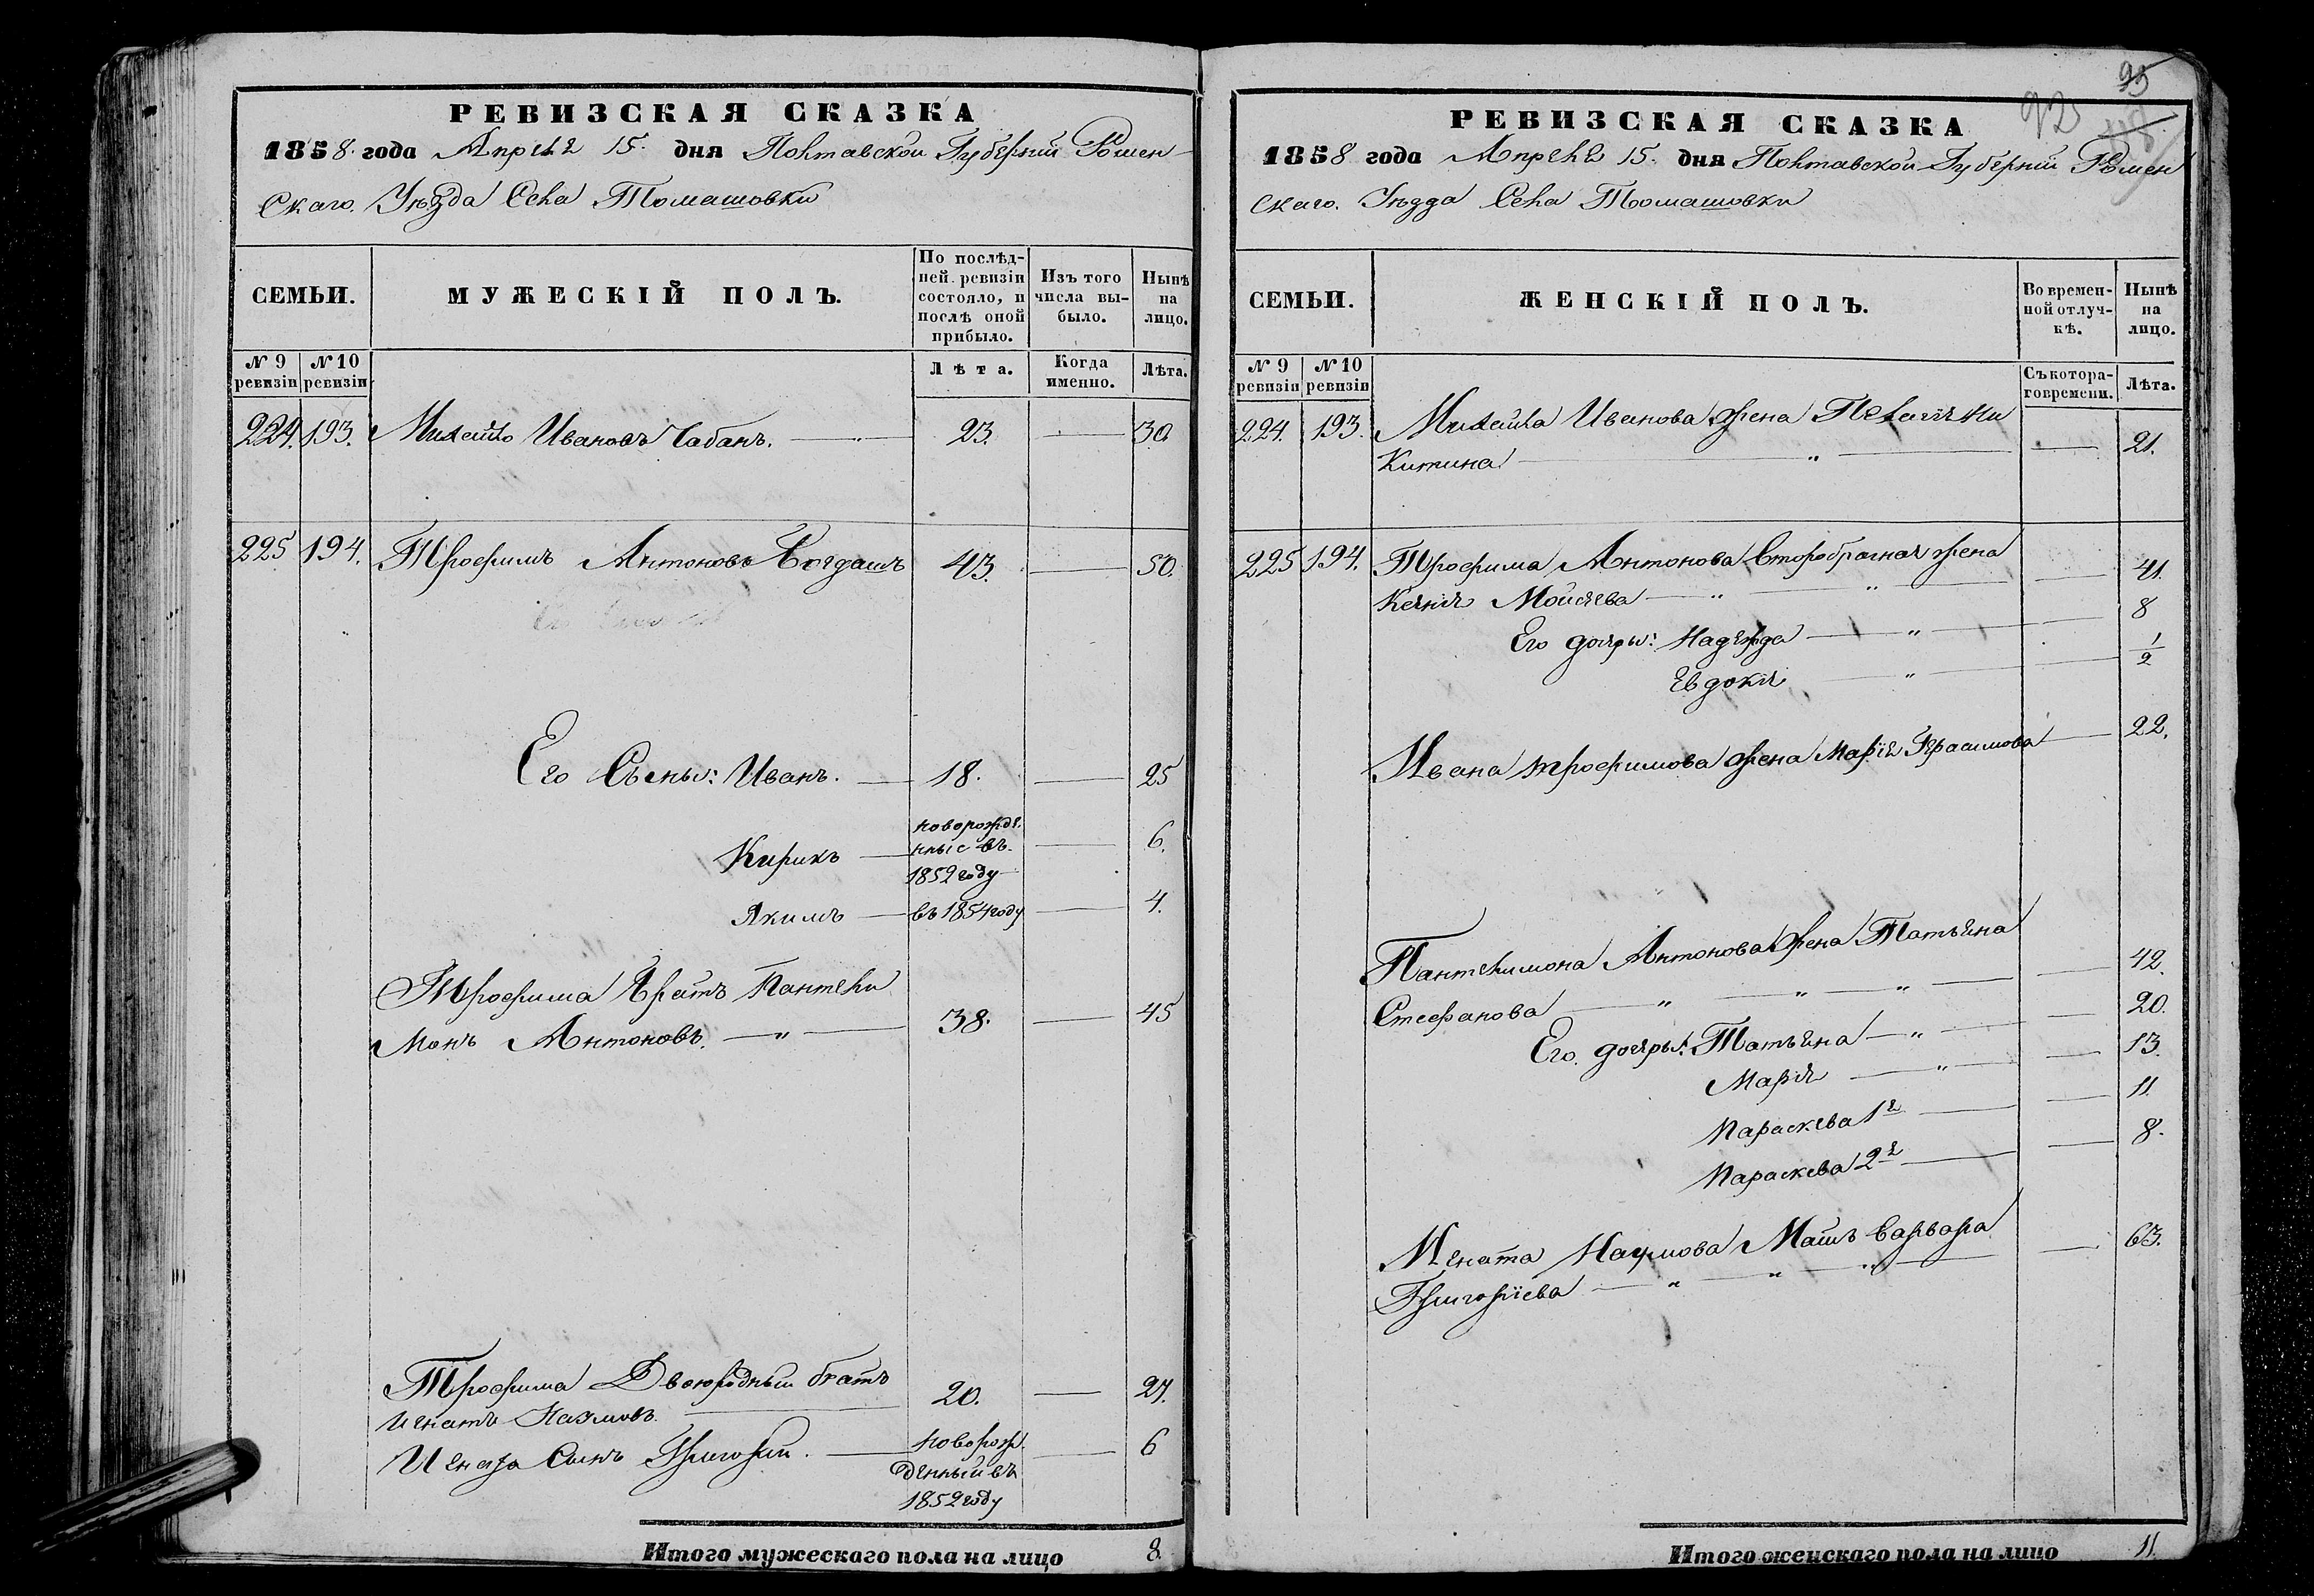 РЕВИЗСКАЯ СКАЗКА
1858. года Апреля 15. дня Полтавской Губерніи Ромен-
скаго. Уѣзда Села Томашовки
СЕМЬИ.
МУЖЕСКІЙ ПОЛЪ.
По послѣд-
ней ревизіи
состояло, и
послѣ оной
прибыло.
Изъ того
числа вы-
было.
Нынѣ
на
лицо.
№ 9
ревизіи
№ 10
ревизіи
Лѣта.
Когда
именно.
Лѣта.
224. 193. Михайло Ивановъ Чабанъ. 23. 30
225 194. Трофимъ Антоновъ Богдашъ 43. 50.
Его Сыны: Иванъ. 18. 25
Кирикъ новорожде
нные въ
1852 году 6.
Якимъ въ 1854 году 4.
Трофима Братъ Пантели
монъ Антоновъ. 38. 45
Трофима Двоюродный братъ
Игнатъ Наумовъ. 20. 27.
Игната Сынъ Григорій. новорож
денный въ
1852 году 6
Итого мужескаго пола на лицо 8.
95
92
РЕВИЗСКАЯ СКАЗКА
1858 года Апреля 15. дня Полтавской Губерніи Ромен
скаго. Уѣзда Села Томашовки
СЕМЬИ.
ЖЕНСКІЙ ПОЛЪ.
Во времен-
ной отлуч-
кѣ.
Нынѣ
на
лицо.
№ 9
ревизіи
№ 10
ревизіи
Съ котора-
го времени.
Лѣта.
224. 193. Михайла Иванова жена Пелагія Ни
Китина 21.
225 194. Трофима Антонова Второбрачная жена
Ксенія Моисѣева 41.
Его дочери: Надежда 8
Евдокія 1/2
Ивана трофимова жена Марія Герасимова 22.
Пантелимона Антонова жена Татьяна
Стефанова 42.
Его дочери: Татьяна 20.
Марія 13.
Параскева 1я 11.
Параскева 2я 8.
Игната Наумова Мать Варвара
Григоріева 63.
Итого женскаго пола на лицо 11.